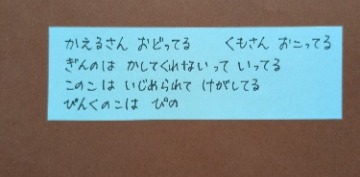 かえるさん おどってる　　くもさん おこってる
ぎんのは かしてくれないって いってる
このこは いじめられて けがしてる
ぴんくのこは ぴの